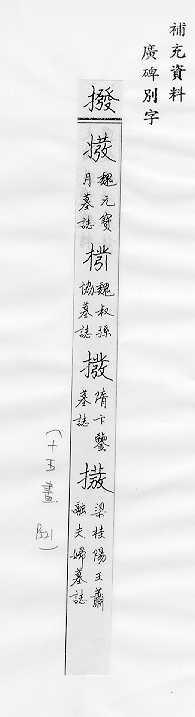 補充資料
廣碑別字
撥
魏元寶
月墓誌
魏叔孫
協墓誌
撥
隋卞鑒
墓誌
梁桂陽王蕭
融夫婦墓誌
(十五畫